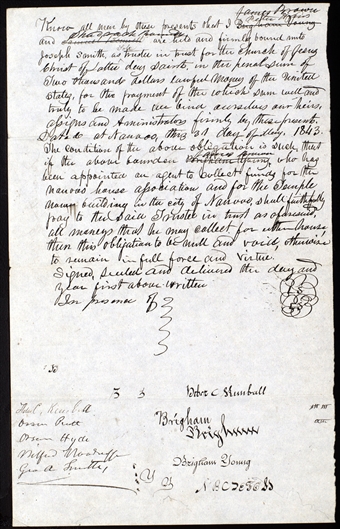 James Brown
Know all men by these presents that I Brigham Young
and are held and firmly bound unto
Joseph Smith, as Trustee in trust for the Church of Jesus
Christ of Latter day Saints, in the penal sum of
Two thousand dollars lawful money of the United
States, for the payment of the which sum well and
truly to be made we bind ourselves our heirs,
assigns and Administrators firmly by these presents.
Dated at Nauvoo, this 31 day of May. 1843.
The condition of the above obligation is such, that
if the above bounden Brigham Young who has
been appointed an agent to collect funds for the
Nauvoo house association and for the Temple
now building in the city of Nauvoo, shall faithfully
pay to the said Trustee in trust as aforesaid,
all moneys that he may collect for either house
then this obligation to be null and void, otherwise
to remain in full force and virtue.
Signed, sealed and delivered the day and
year first above written
In presence of
Heber C Kimball
Brigham
Brigham
Brigham Young
Orson Pratt
Orson Hyde
Wilford Woodruff
Geo A. Smith